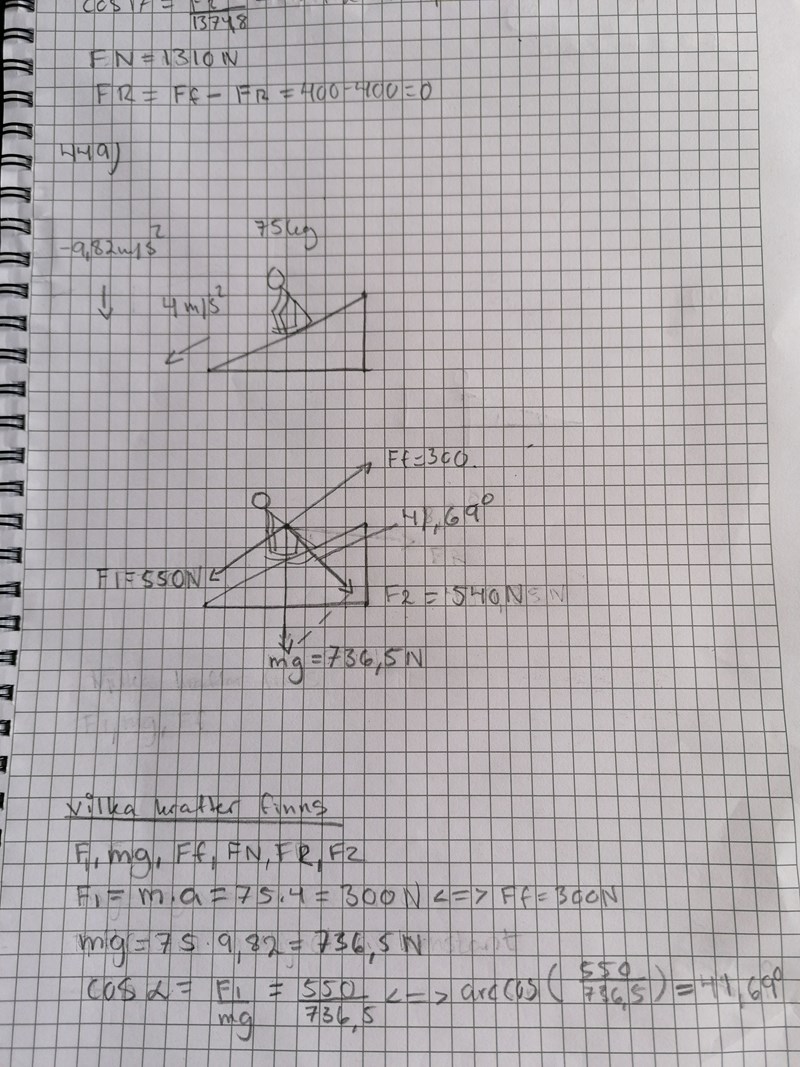 13748
FN = 1310 N
FR = Ff - FR = 400-400 = 0
449)
-9,82m/s²
75kg
4 m/s²
Ff=300.
41,69°
F1=550N
F2 = 540N
mg = 736,5 N
vilka krafter finns
F1, mg, Ff, FN, FR, F2
F1 = m·a = 75·4 = 300 N <=> Ff = 300N
mg = 75 · 9,82 = 736,5 N
cos α = F1/mg = 550/736,5 <=> arccos(550/736,5) = 41,69°